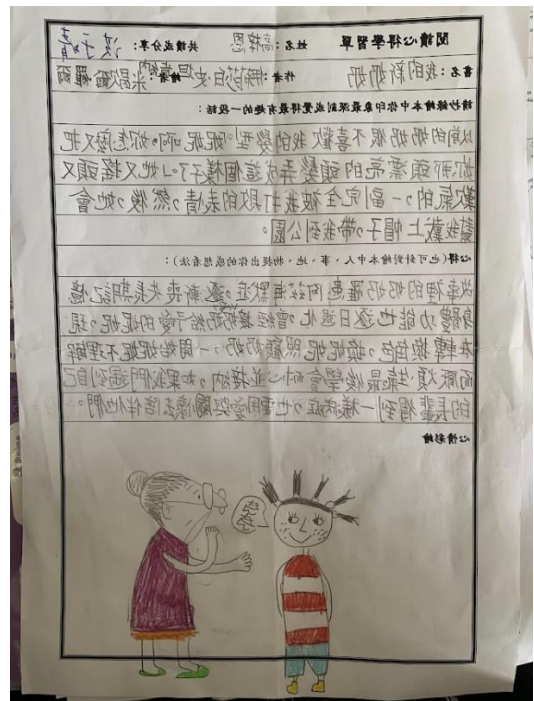 閱讀心得學習單
姓名：高梓恩 共讀成分享：
書名：我的新奶奶 作者 繪者 米榭爾
請抄錄繪本中你印象最深刻或覺得最有趣的一段話：
以前的奶奶很不喜歡我的髮型。「妮妮呵，妳怎麼又把
妳那頭漂亮的頭髮弄成這個樣子？」她又搖頭又
歎氣的，一副完全被我打敗的表情，然後，她會
幫我戴上帽子，帶我到公園。
心得(也可針對繪本中人、事、地、物提出你的感想看法)：
故事裡的奶奶罹患阿茲海默症，逐漸喪失長期記憶
身體功能也逐日退化，曾經被奶奶給予愛的妮妮，現
在轉換角色，換妮妮照顧奶奶，一開始妮妮不理解
而厭煩、生氣最後學會耐心並接納，如果我們遇到自己
的長輩得到一樣病症，也要用愛與關懷去陪伴他們。
心情彩繪